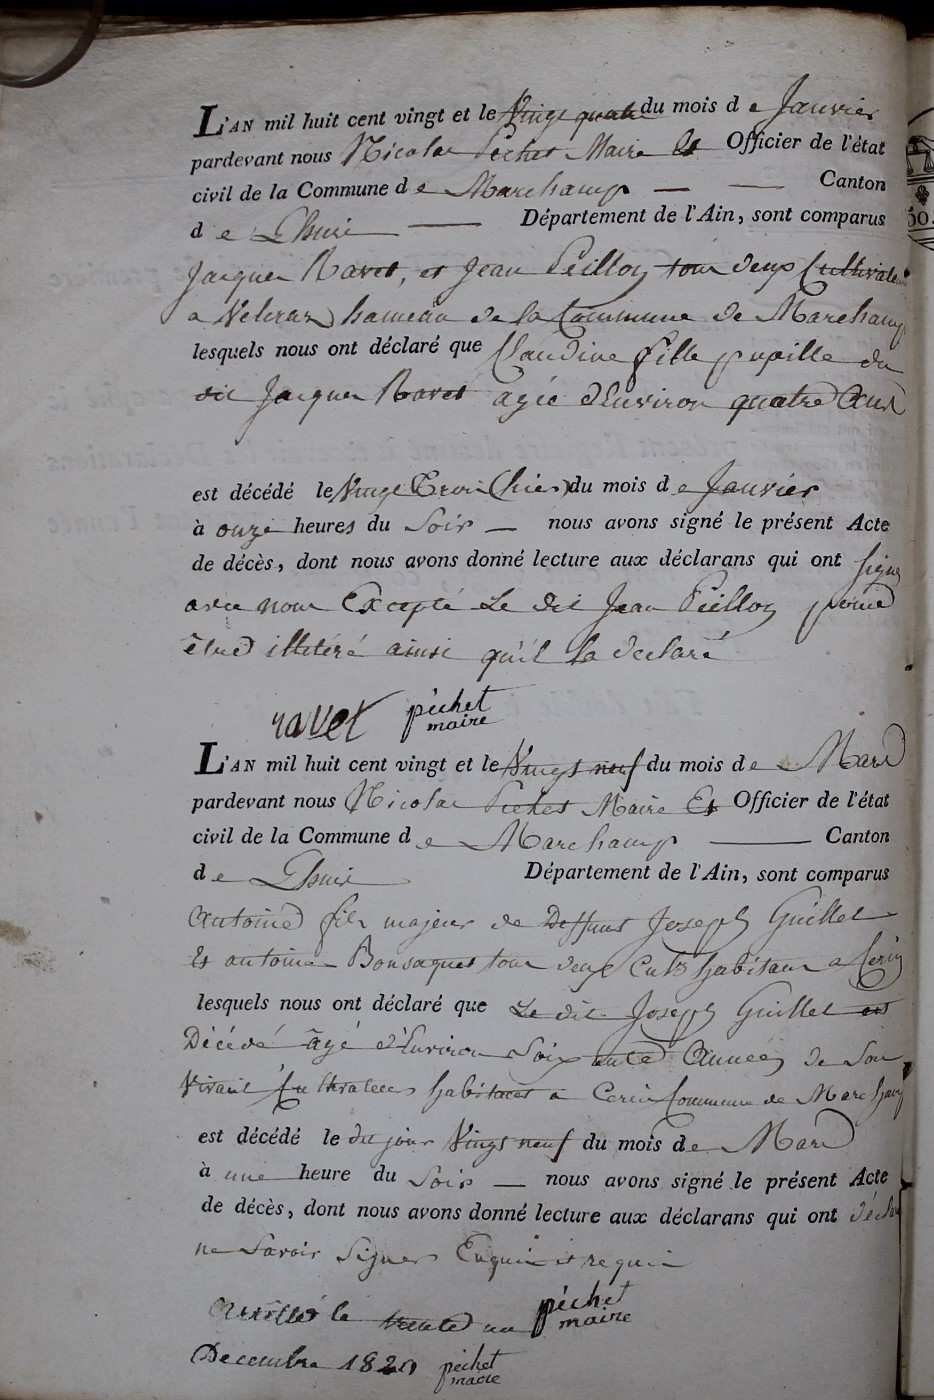 L'AN mil huit cent vingt et le Vingt quatre du mois de Janvier
pardevant nous Nicolas Pichet Maire et Officier de l'état
civil de la Commune de Marchamp Canton
de Lhuis Département de l'Ain, sont comparus
Jacques Ravet, et Jean Peilloz tous deux Cultivateurs
a Veleraz hameau de la Commune de Marchamp
lesquels nous ont déclaré que Claudine fille pupille du
dit Jacques Ravet agée d'Environ quatre Ans
est décédé le Vingt Trois (hier) du mois de Janvier
à onze heures du Soir nous avons signé le présent Acte
de décès, dont nous avons donné lecture aux déclarans qui ont Signé
avec nous Excepté Le dit Jean Peilloz pour
être illitéré ainsi qu'il la declaré
ravet pichet
maire
L'AN mil huit cent vingt et le Vingt neuf du mois de Mars
pardevant nous Nicolas Pichet Maire Et Officier de l'état
civil de la Commune de Marchamp Canton
de Lhuis Département de l'Ain, sont comparus
Antoine fils majeur de Deffunt Joseph Guillet
Et antoine Bonsaquet tous deux Cult habitans a Cerin
lesquels nous ont déclaré que Le dit Joseph Guillet est
Décédé âgé d'Environ Soixante Années de Son
Vivant Cultivateur habitant a Cerin Commune de Marchamp
est décédé le du jour Vingt neuf du mois de Mars
à une heure du Soir nous avons signé le présent Acte
de décès, dont nous avons donné lecture aux déclarans qui ont déclaré
ne Savoir Signer Enquis et requis
Arrêté le trente un pichet
maire
Decembre 1820 pichet
maire